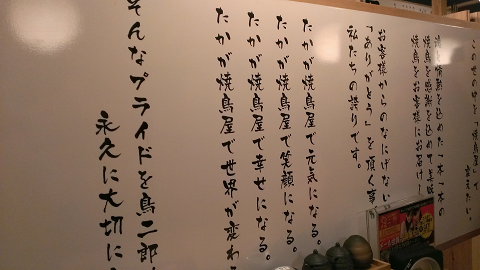 この世の中を「焼鳥屋」で
変えたい。
情熱を込めた一本一本の
焼鳥を感謝を込めて美味
焼鳥をお客様にお届け
お客様からのなにげない
「ありがとう」を頂く事が
私たちの誇りです。
たかが焼鳥屋で元気になる。
たかが焼鳥屋で笑顔になる。
たかが焼鳥屋で幸せになる。
たかが焼鳥屋で世界が変わ
そんなプライドを鳥二郎
永久に大切に